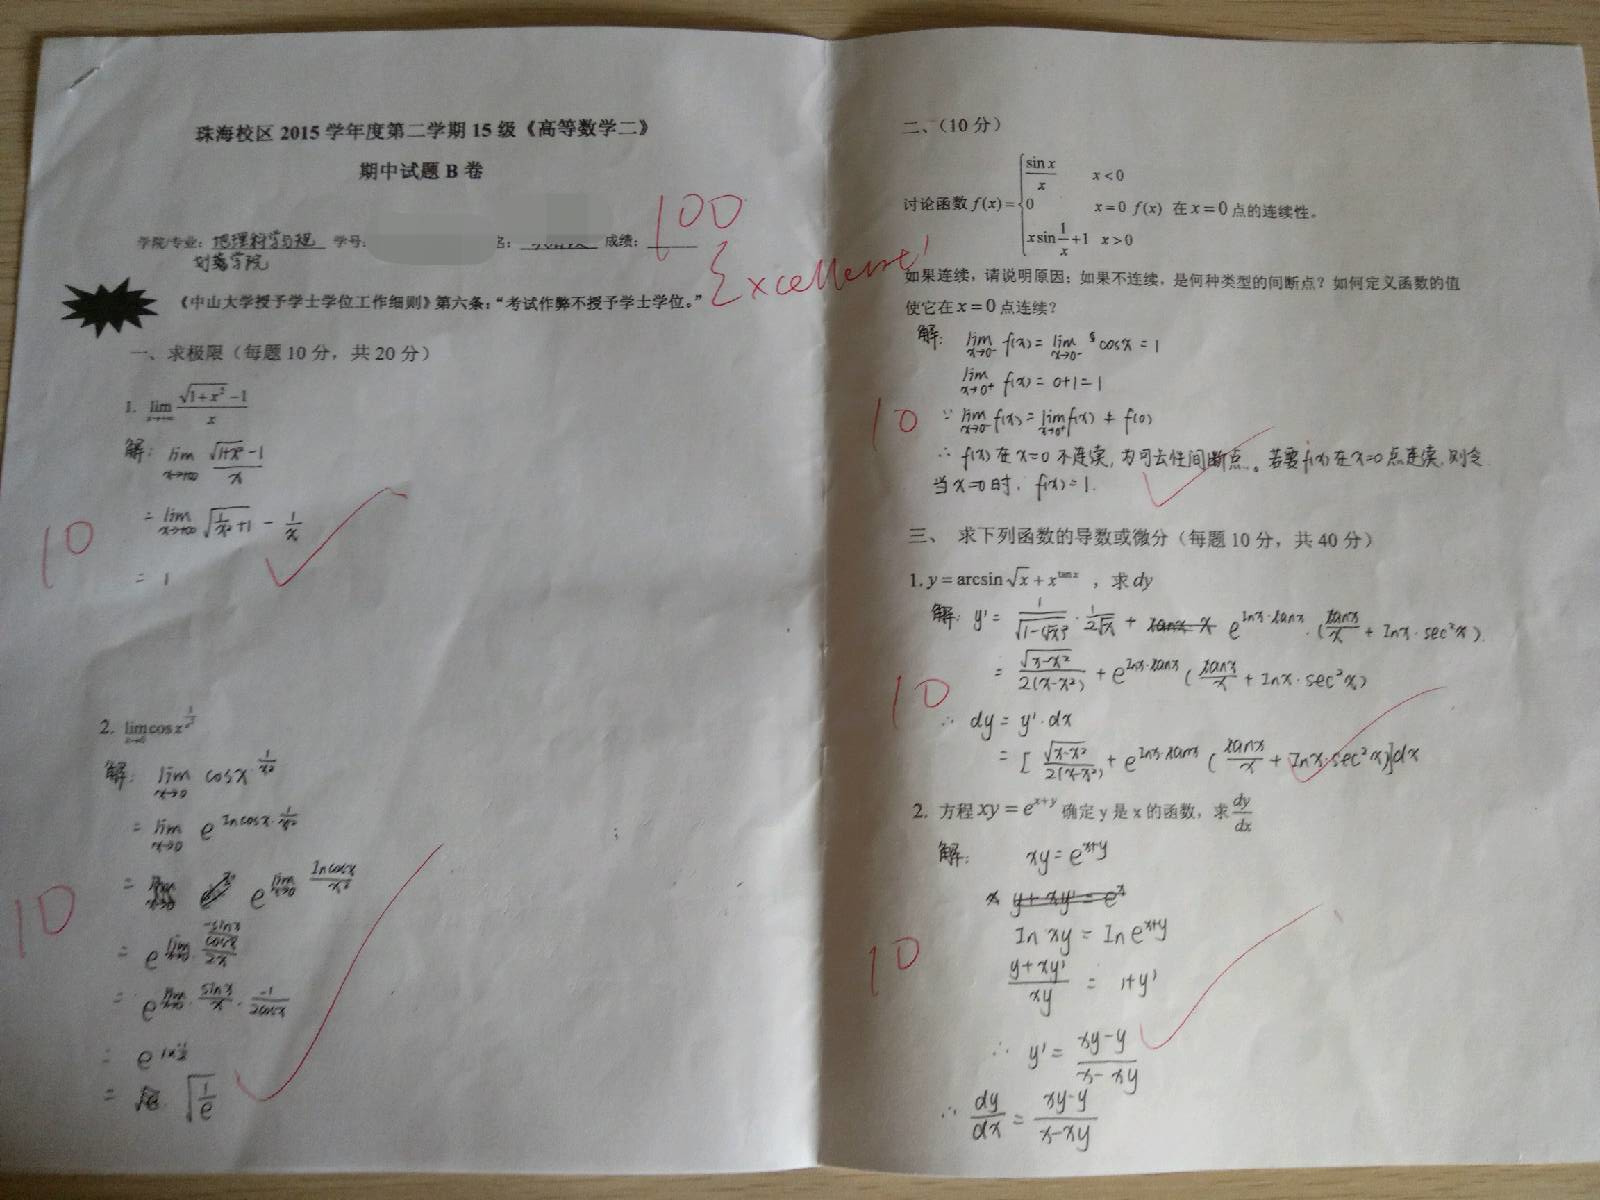 珠海校区 2015 学年度第二学期 15 级《高等数学二》
期中试题 B 卷
学院/专业: 地理科学与规 学号: 名: 成绩: 100
划学院
Excellent!
《中山大学授予学士学位工作细则》第六条:“考试作弊不授予学士学位。”
一、求极限(每题 10 分,共 20 分)
1. lim x→+∞ (√(1+x²) -1)/x
解: lim x→+∞ (√(1+x²) -1)/x
= lim x→+∞ √(1/x² +1) - 1/x
10
= 1
2. lim x→0 cos x^(1/x²)
解: lim x→0 cosx^(1/x²)
= lim x→0 e^(lncosx·1/x²)
= e^(lim x→0 lncosx/x²)
10
= e^(lim x→0 (-sinx/cosx)/2x)
= e^(lim x→0 sinx/x · -1/2cosx)
= e^(1×-1/2)
= √(1/e)
二、(10 分)
讨论函数 f(x)= { sin x/x x<0
0 x=0
x sin 1/x +1 x>0
f(x) 在 x=0 点的连续性。
如果连续,请说明原因;如果不连续,是何种类型的间断点?如何定义函数的值
使它在 x=0 点连续?
解: lim x→0⁻ f(x) = lim x→0⁻ cosx = 1
lim x→0⁺ f(x) = 0+1=1
10
∵ lim x→0⁻ f(x) = lim x→0⁺ f(x) ≠ f(0)
∴ f(x) 在 x=0 不连续, 为可去性间断点。若要 f(x) 在 x=0 点连续, 则令
当 x=0 时, f(x)=1.
三、 求下列函数的导数或微分(每题 10 分,共 40 分)
1. y = arcsin √x + x^(tan x) ,求 dy
解: y' = 1/√(1-(√x)²) · 1/2√x + e^(lnx·tanx) · (tanx/x + lnx·sec²x).
= √(x-x²)/2(x-x²) + e^(lnx·tanx) (tanx/x + lnx·sec²x)
10
∴ dy = y'·dx
= [ √(x-x²)/2(x-x²) + e^(lnx·tanx) (tanx/x + lnx·sec²x)]dx
2. 方程 xy = e^(x+y) 确定 y 是 x 的函数,求 dy/dx
解: xy = e^(x+y)
y + xy' = e^x
ln xy = ln e^(x+y)
10
(y+xy')/xy = 1+y'
∴ y' = (xy-y)/(x-xy)
∴ dy/dx = (xy-y)/(x-xy)